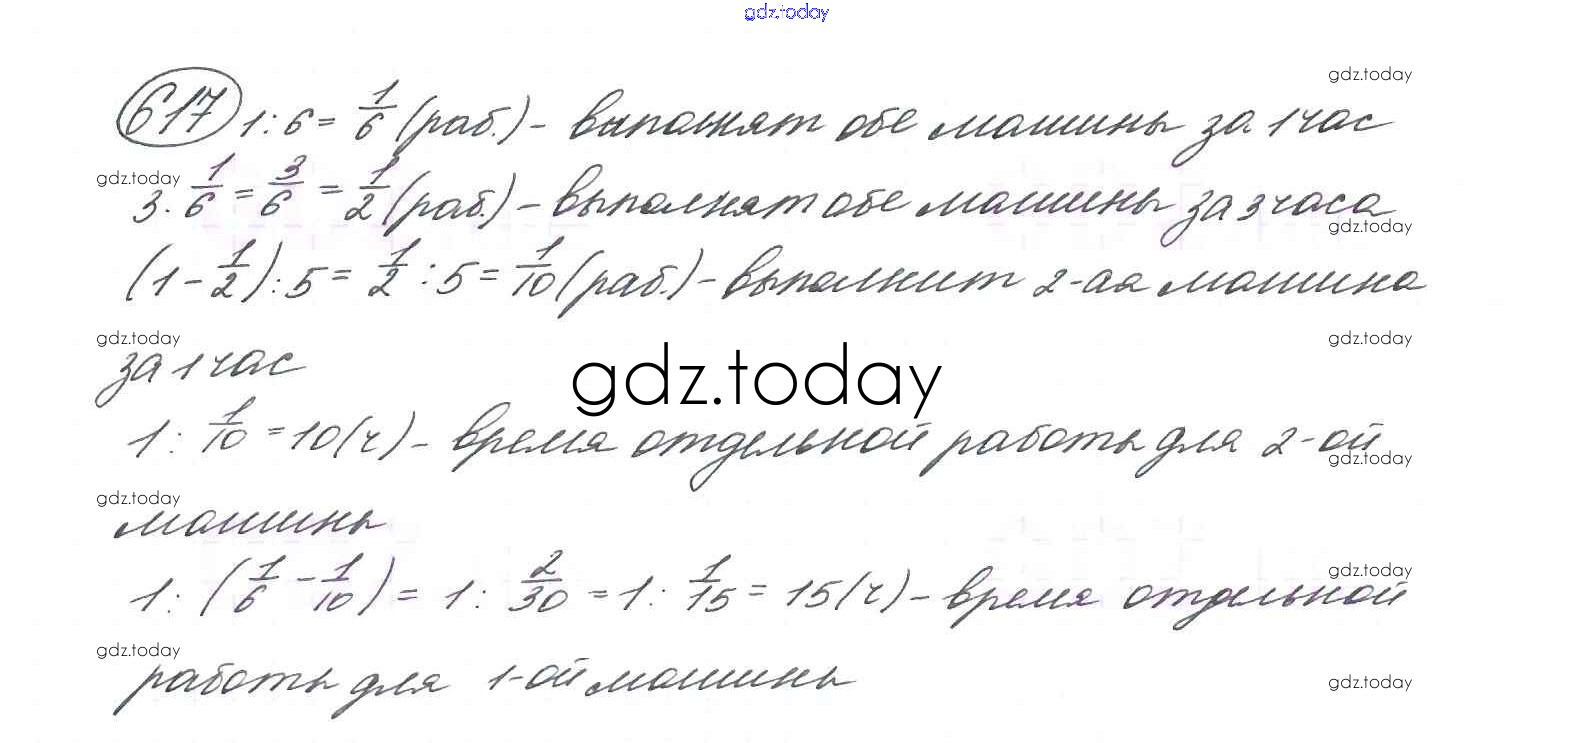 gdz.today
gdz.today
617 1:6= 1/6 (раб.) – выполнят обе машины за 1 час
gdz.today 3· 1/6 = 3/6 = 1/2 (раб.) – выполнят обе машины за 3 часа
gdz.today
(1 – 1/2):5 = 1/2 :5 = 1/10 (раб.) – выполнит 2-ая машина
gdz.today gdz.today
за 1 час
gdz.today
1: 1/10 = 10 (ч) – время отдельной работы для 2-ой
gdz.today
gdz.today
машины
gdz.today
1: (1/6 – 1/10) = 1: 2/30 = 1: 1/15 = 15 (ч) – время отдельной
gdz.today
работы для 1-ой машины
gdz.today